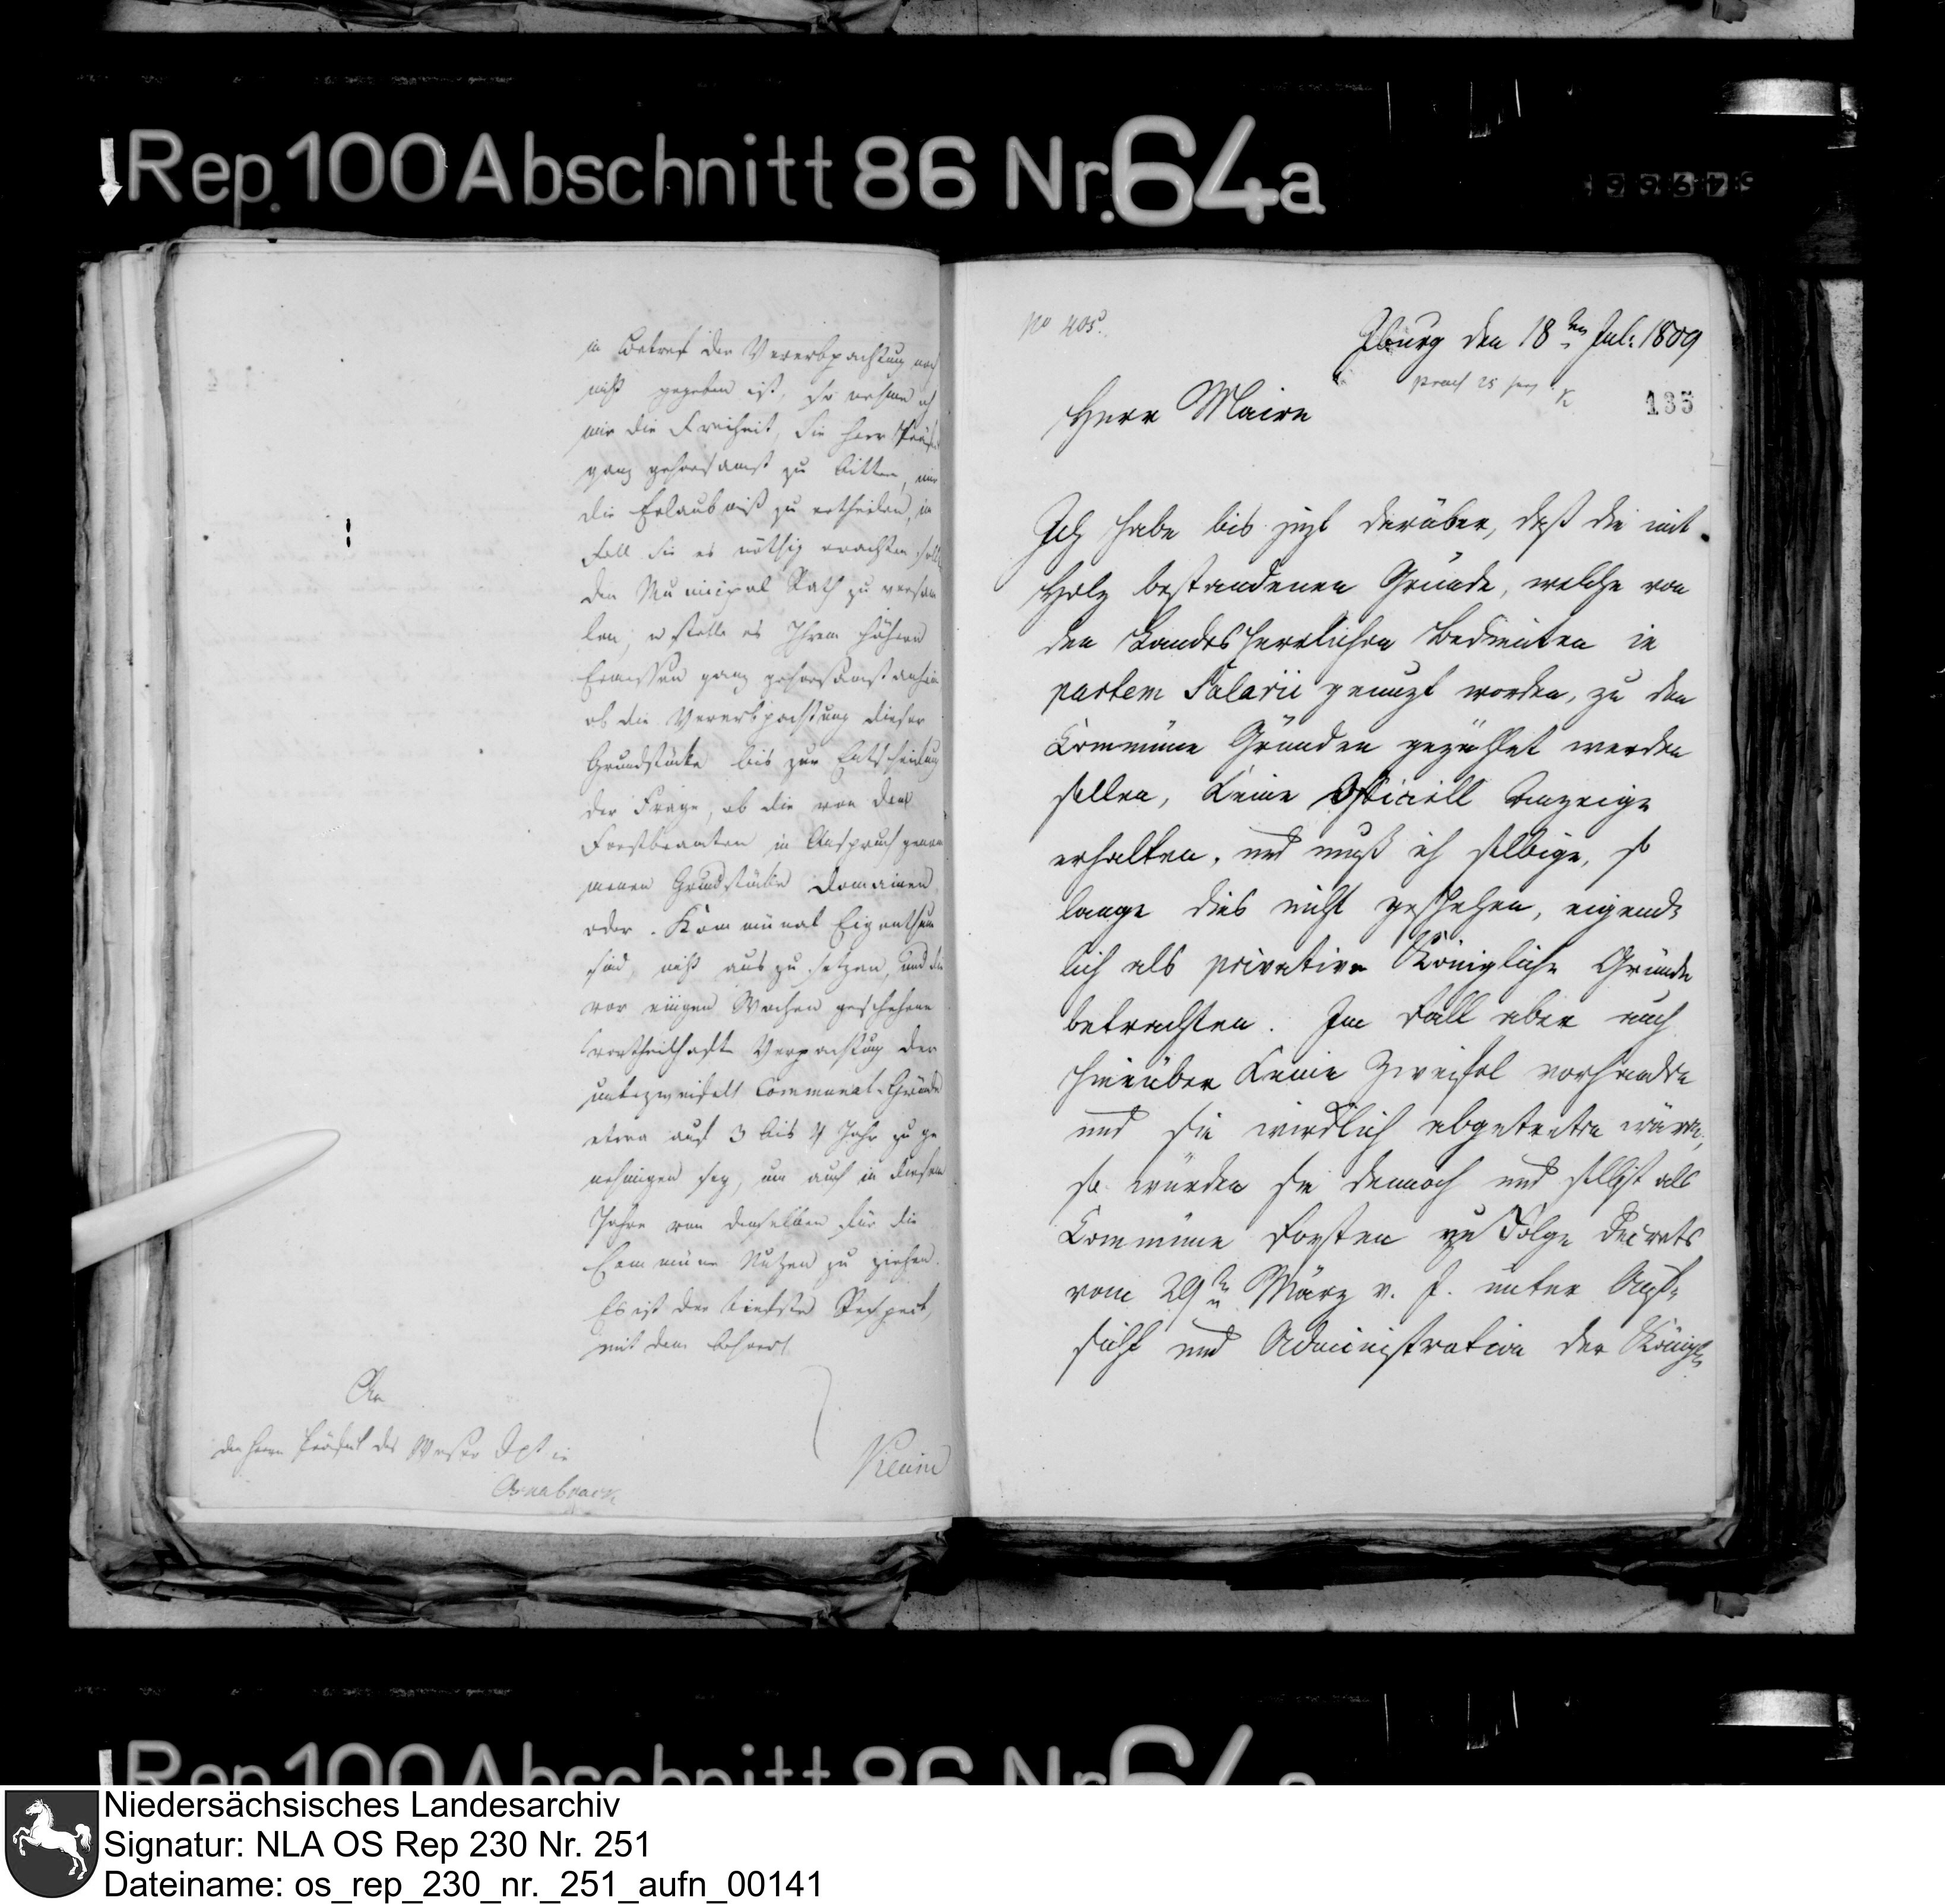 Rep. 100 Abschnitt 86 Nr. 64a
in Betref der Vererbpachtung noch
nicht gegeben ist, so nehme ich
mir die Freiheit, Sie Herr Präfect
ganz gehorsamst zu bitten, mir
die Erlaubniß zu ertheilen, im
Fall Sie es nöthig erachten sollten
den Municipal Rath zu versam
len; u stelle es Ihrem höhern
Ermessen ganz gehorsamst anheim
ob die Vererbpachtung dieser
Grundstücke bis zur Entscheidung
der Frage, ob die von den
Forstbeamten in Anspruch genom
menen Grundstücke Domainen
oder Kommunal Eigenthum
sind, nicht auszusetzen, und die
vor einigen Wochen geschehene
vortheilhafte Verpachtung der
unbezweifelt Communal-Gründe
etwa auf 3 bis 4 Jahr zu ge
nehmigen sey, um auch in diesem
Jahre von denselben für die
Commune Nutzen zu ziehen.
Es ist der tiefste Respect,
mit dem beharrt
An
den Herrn Präfect des Weser Dpt in
Osnabrück
No 405.
Iburg den 18ten Jul: 1809
135
Herr Maire
Ich habe bis jezt darüber, daß die mit
Holz bestandenen Gründe, welche von
den Landesherrlichen Bedienten in
partem Salarii genuzt worden, zu den
Commüne Gründen gezählet werden
sollen, keine Officiell Anzeige
erhalten, und muß ich selbige, so
lange dies nicht geschehen, eigend-
lich als privative Königliche Gründe
betrachten. Im Fall aber auch
hierüber keine Zweifel vorhanden
und sie wirklich abgetreten wären,
so würden sie dennoch und selbst als
Commüne Forsten zu Folge Decrets
vom 29ten März v. J. unter Auf-
sicht und Administration der Königl
Rep. 100 Abschnitt 86 Nr. 64a
Niedersächsisches Landesarchiv
Signatur: NLA OS Rep 230 Nr. 251
Dateiname: os_rep_230_nr._251_aufn_00141